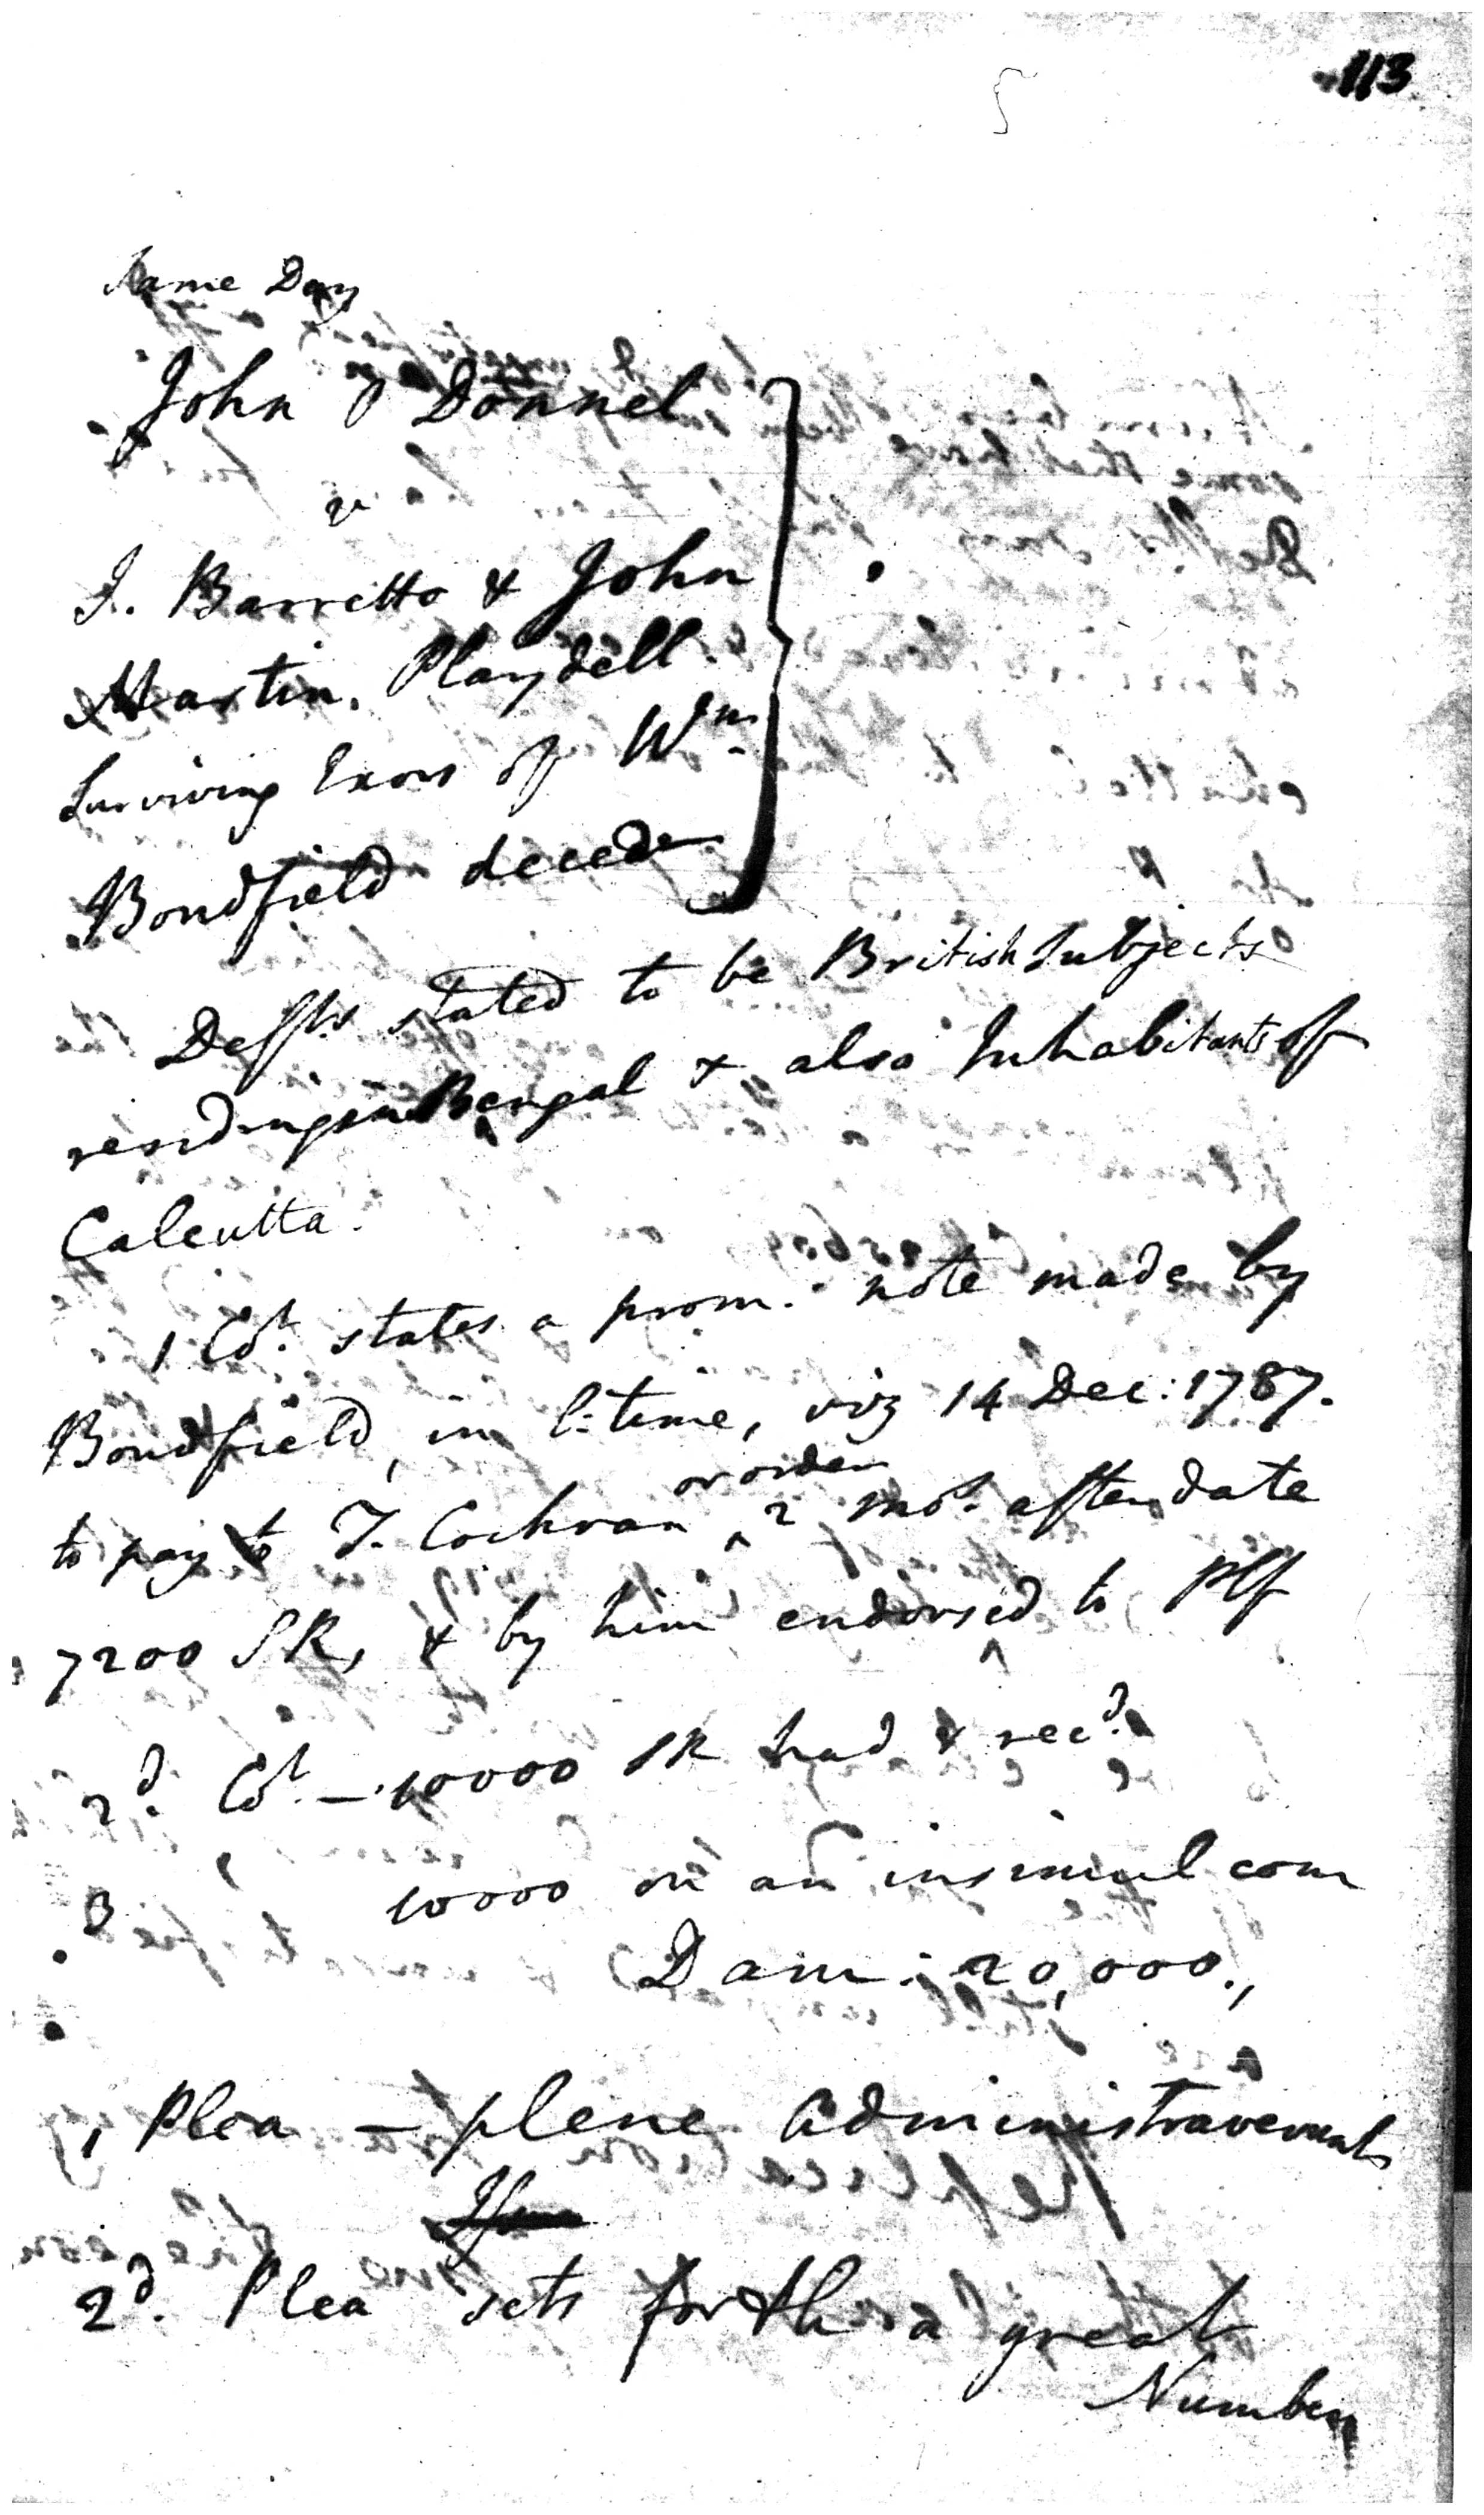 113
Same Day
John O Donnel
v
J. Barretto & John
Martin Playdell
Surviving Exors of Wm
Bondfield deced
Defts stated to be British Subjects
residing in Bengal & also Inhabitants of
Calcutta.
1 Ct. states a prom. note made by
Bondfield, in l. time, viz 14 Dec: 1787.
to pay to J. Cochran or order 2 mos. after date
7200 SR, & by him endorsed to Plf
2d. Ct. — 10000 SR had & recd.
3 10000 on an insimul com
Dam: 20,000.
1 Plea — plene administraverunt
2d. Plea sets forth a great
Number